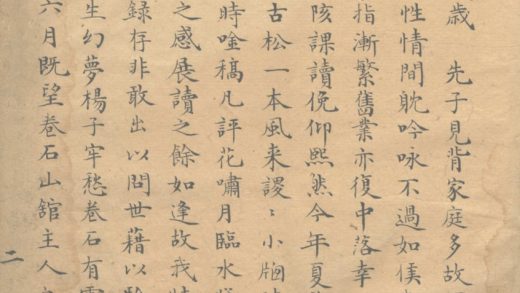 歲 先子見背家庭多故
性情間躭吟咏不過如候
指漸繁舊業亦復中落幸
陔課讀俛仰熙然今年夏
古松一本風来謖〻小牕
時唫稿凡評花嘯月臨水
之感展讀之餘如逢故我
錄存非敢出以問世藉以
生幻夢楊子牢愁卷石有
六月既望卷石山舘主人
二